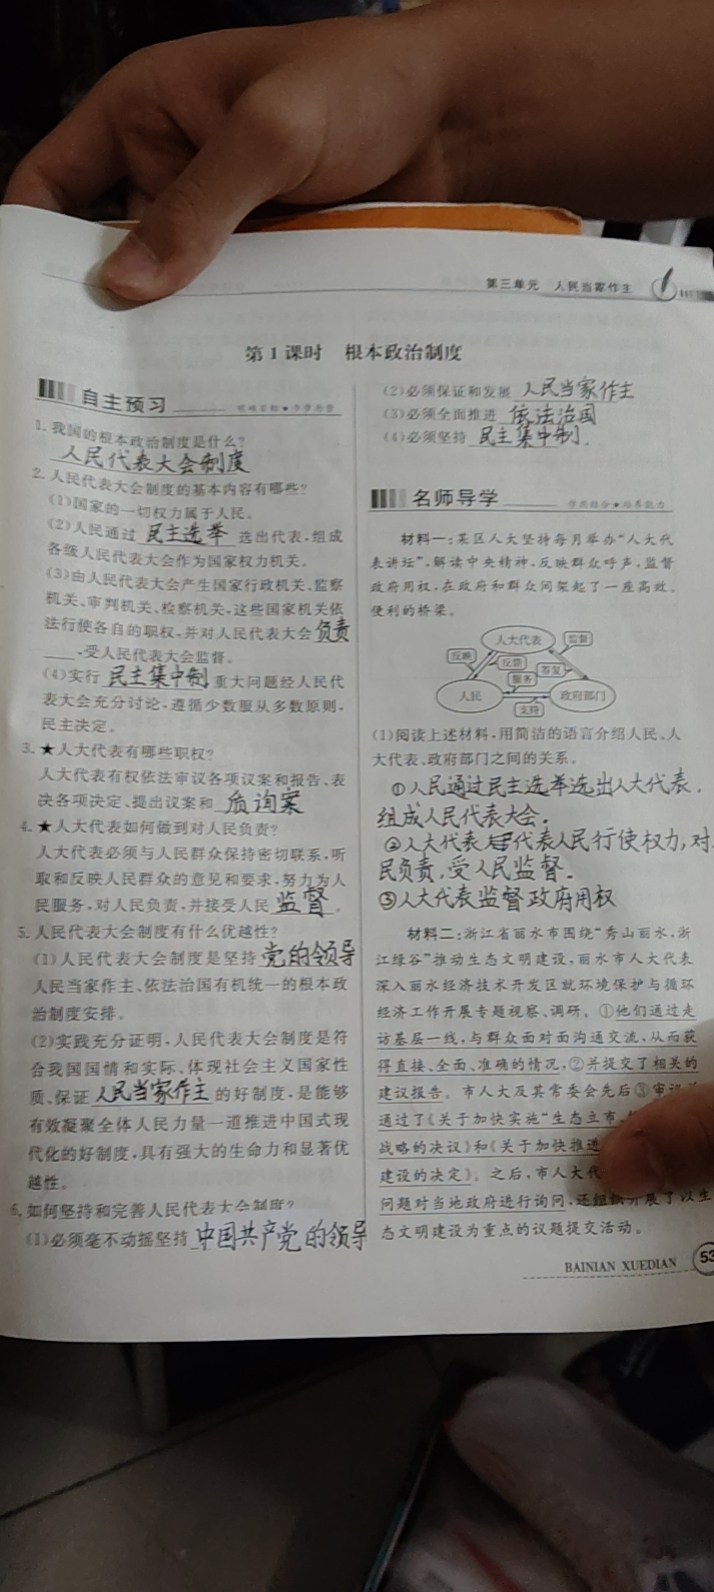 第三单元 人民当家作主
第1课时 根本政治制度
自主预习
1.我国的根本政治制度是什么?
人民代表大会制度
2.人民代表大会制度的基本内容有哪些?
(1)国家的一切权力属于人民。
(2)人民通过 民主选举 选出代表,组成
各级人民代表大会作为国家权力机关。
(3)由人民代表大会产生国家行政机关、监察
机关、审判机关、检察机关,这些国家机关依
法行使各自的职权,并对人民代表大会 负责
,受人民代表大会监督。
(4)实行 民主集中制 重大问题经人民代
表大会充分讨论,遵循少数服从多数原则,
民主决定。
3.★人大代表有哪些职权?
人大代表有权依法审议各项议案和报告、表
决各项决定、提出议案和 质询案
4.★人大代表如何做到对人民负责?
人大代表必须与人民群众保持密切联系,听
取和反映人民群众的意见和要求,努力为人
民服务,对人民负责,并接受人民 监督 。
5.人民代表大会制度有什么优越性?
(1)人民代表大会制度是坚持 党的领导
人民当家作主、依法治国有机统一的根本政
治制度安排。
(2)实践充分证明,人民代表大会制度是符
合我国国情和实际、体现社会主义国家性
质、保证 人民当家作主 的好制度,是能够
有效凝聚全体人民力量一道推进中国式现
代化的好制度,具有强大的生命力和显著优
越性。
6.如何坚持和完善人民代表大会制度?
(1)必须毫不动摇坚持 中国共产党的领导
(2)必须保证和发展 人民当家作主
(3)必须全面推进 依法治国
(4)必须坚持 民主集中制 .
名师导学
材料一:某区人大坚持每月举办“人大代
表讲坛”,解读中央精神,反映群众呼声,监督
政府用权,在政府和群众间架起了一座高效、
便利的桥梁。
人大代表 监督
反映 反馈 答复
服务
人民 政府部门
支持
(1)阅读上述材料,用简洁的语言介绍人民、人
大代表、政府部门之间的关系。
①人民通过民主选举选出人大代表,
组成人民代表大会。
②人大代表 代表人民行使权力,对
民负责,受人民监督.
③人大代表监督政府用权
材料二:浙江省丽水市围绕“秀山丽水,浙
江绿谷”推动生态文明建设,丽水市人大代表
深入丽水经济技术开发区就环境保护与循环
经济工作开展专题视察、调研。①他们通过走
访基层一线,与群众面对面沟通交流,从而获
得直接、全面、准确的情况,②并提交了相关的
建议报告。市人大及其常委会先后③审议
通过了《关于加快实施“生态立市
战略的决议》和《关于加快推进
建设的决定》。之后,市人大代
问题对当地政府进行询问,还组织开展了以生
态文明建设为重点的议题提交活动。
BAINIAN XUEDIAN 53